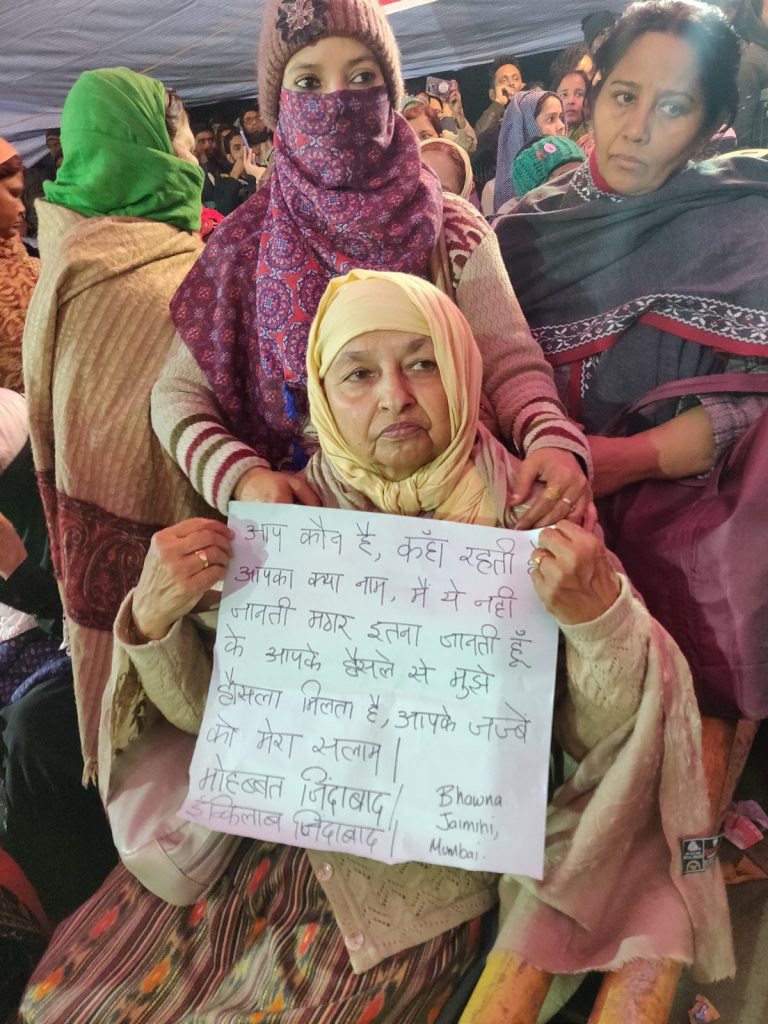 आप कौन है, कहाँ रहती है
आपका क्या नाम, मैं ये नही
जानती मगर इतना जानती हूँ
के आपके हौसले से मुझे
हौसला मिलता है, आपके जज्बे
को मेरा सलाम।
मोहब्बत जिंदाबाद।
इंक़िलाब जिंदाबाद।
Bhawna
Jaimini,
Mumbai.